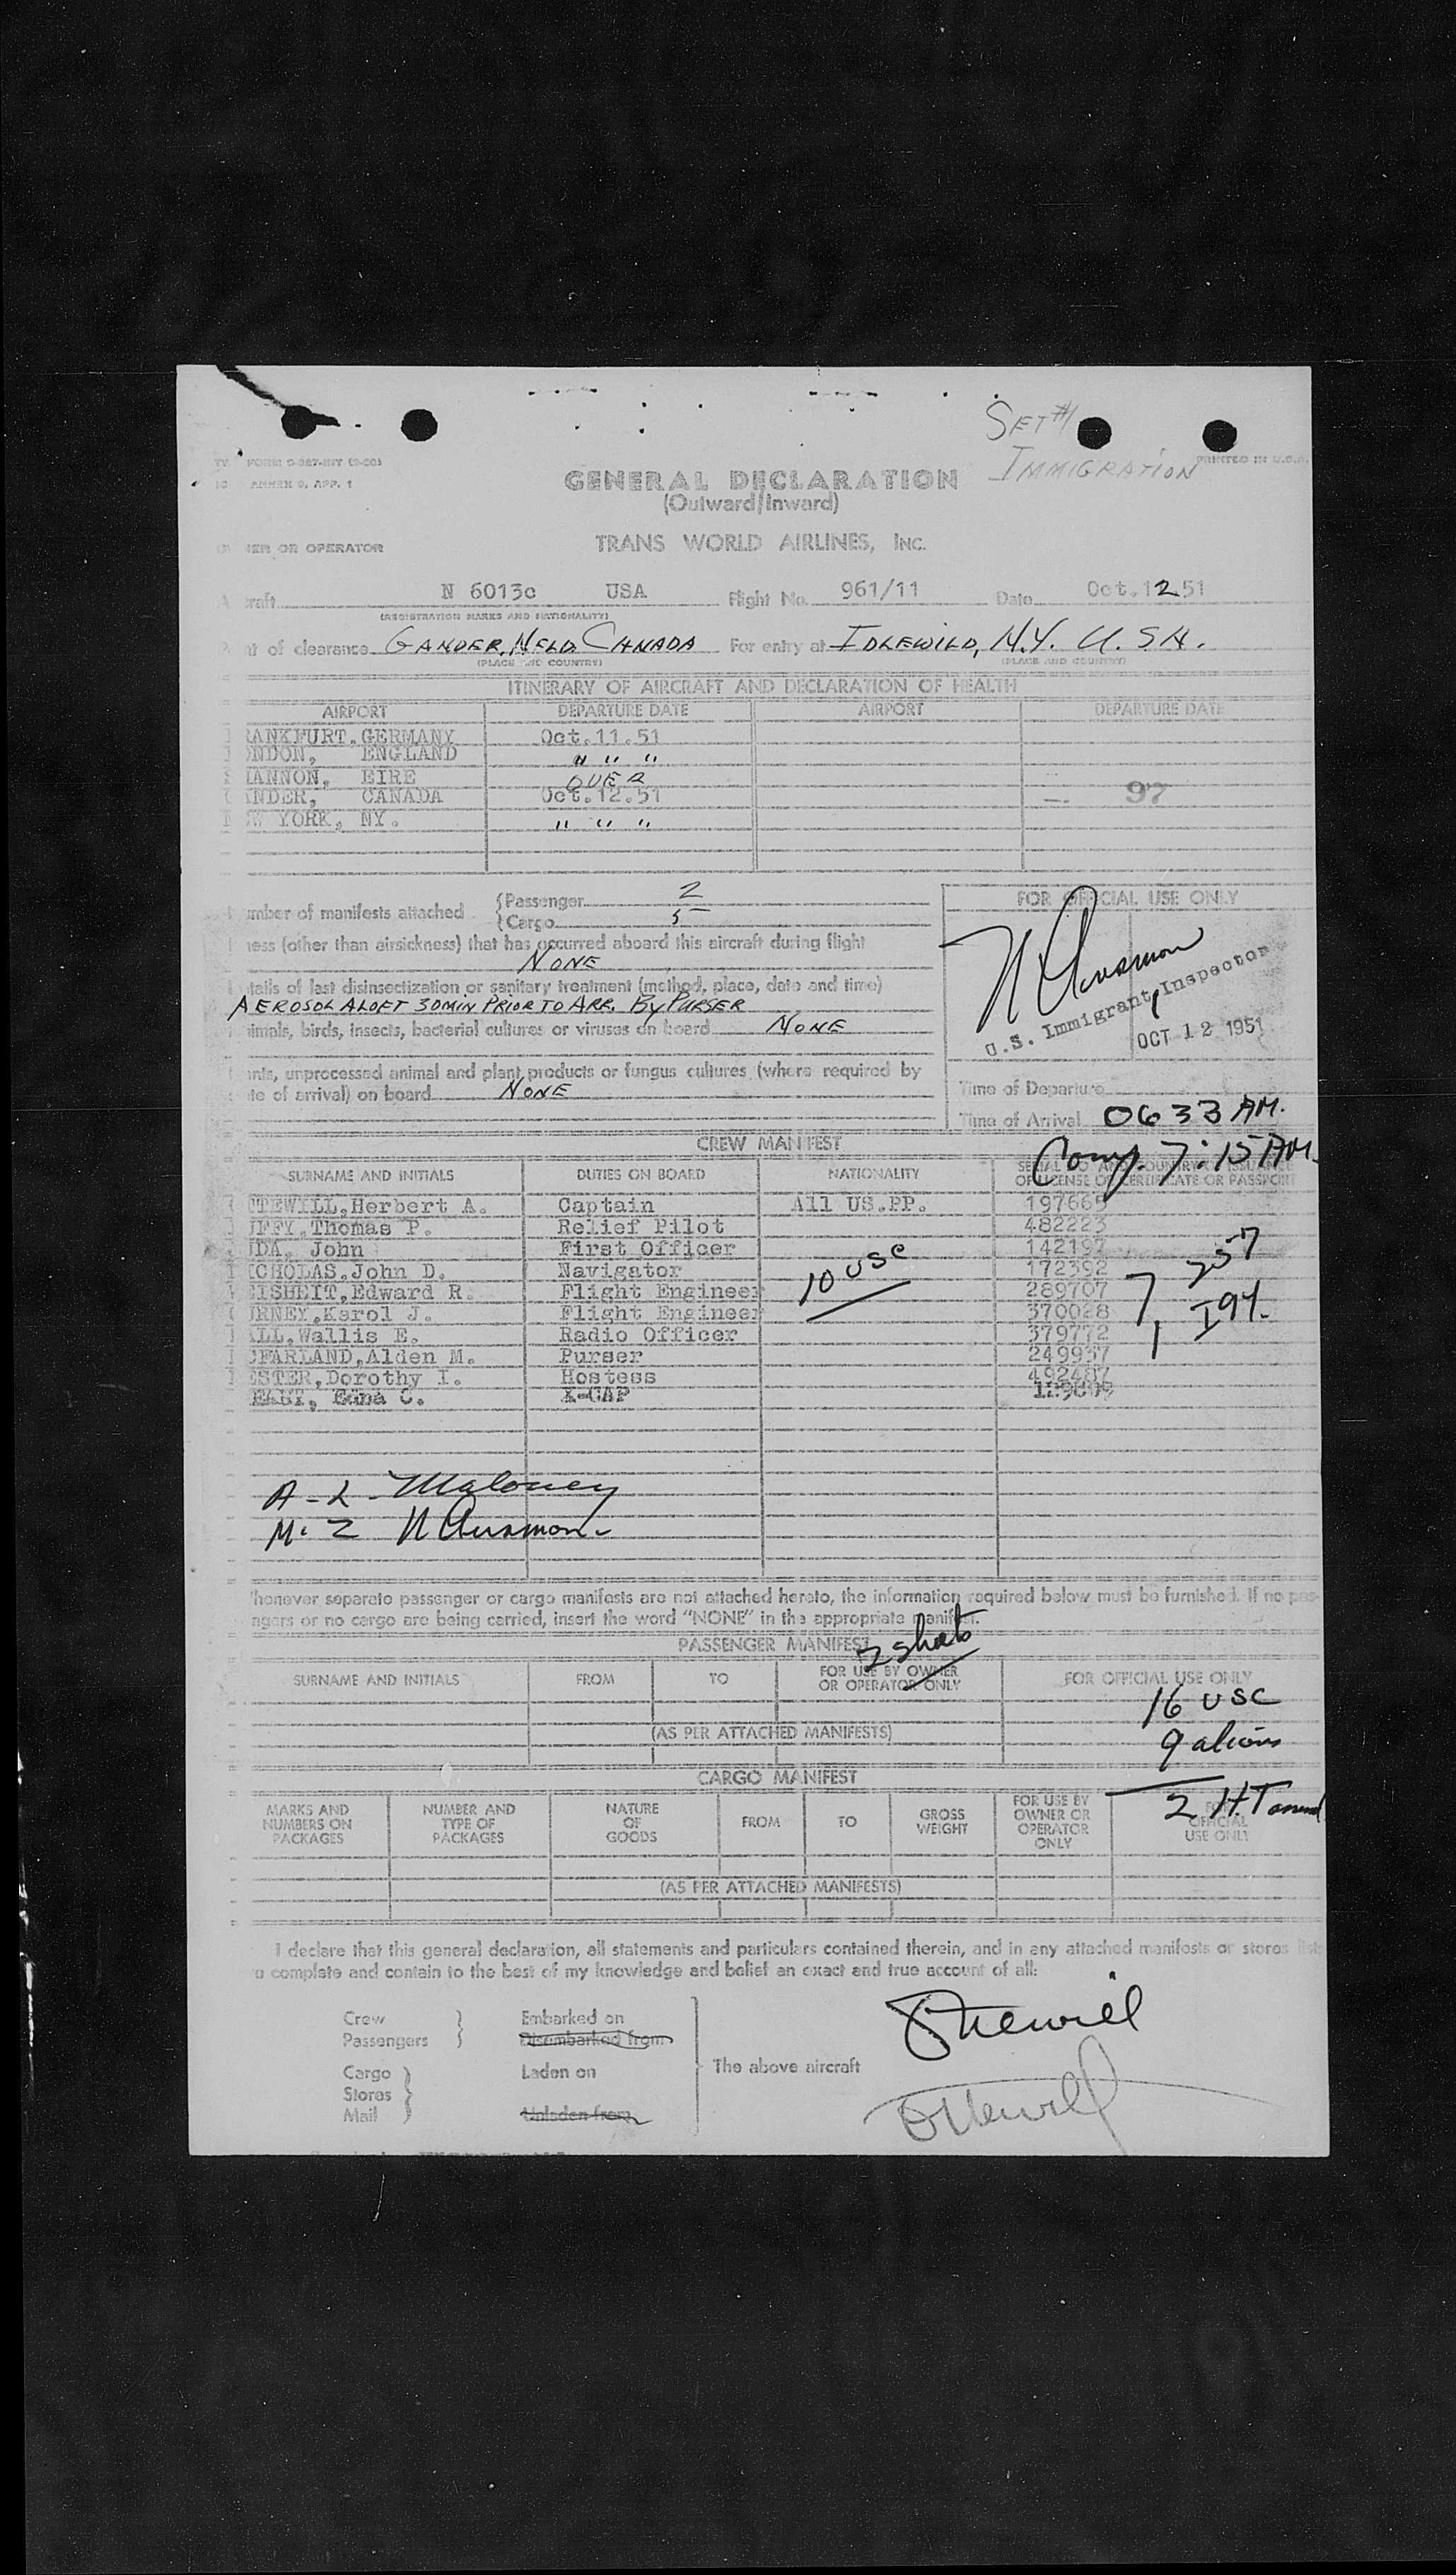 SET #1
IMMIGRATION
PRINTED IN U.S.A.
ANNEX 9, APP. 1
GENERAL DECLARATION
(Outward/Inward)
OR OPERATOR
TRANS WORLD AIRLINES, INC.
N 6013c USA Flight No. 961/11 Date Oct.12 51
(REGISTRATION MARKS AND NATIONALITY)
of clearance GANDER, NFLD. CANADA For entry at IDLEWILD, N.Y. U.S.A.
(PLACE AND COUNTRY) (PLACE AND COUNTRY)
ITINERARY OF AIRCRAFT AND DECLARATION OF HEALTH
AIRPORT DEPARTURE DATE AIRPORT DEPARTURE DATE
RANKFURT, GERMANY Oct.11.51
ONDON, ENGLAND " " "
HANNON, EIRE OVER
ANDER, CANADA Oct.12.51 97
YORK, NY. " " "
umber of manifests attached { Passenger 2
{ Cargo 5
ness (other than airsickness) that has occurred aboard this aircraft during flight
NONE
tails of last disinsectization or sanitary treatment (method, place, date and time)
AEROSOL ALOFT 30MIN PRIOR TO ARR. BY PURSER
nimals, birds, insects, bacterial cultures or viruses on board NONE
ants, unprocessed animal and plant products or fungus cultures (where required by
te of arrival) on board NONE
FOR OFFICIAL USE ONLY
U.S. Immigrant Inspector
OCT 12 1951
Time of Departure
Time of Arrival 0633 AM.
Comp. 7:15 AM.
CREW MANIFEST
SURNAME AND INITIALS DUTIES ON BOARD NATIONALITY SERIAL NO. AND COUNTRY OF ISSUANCE
OF LICENSE OR CERTIFICATE OR PASSPORT
TTEWILL, Herbert A. Captain All US.PP. 197665
UFFY, Thomas P. Relief Pilot 482223
UDA, John First Officer 142197
ICHOLAS, John D. Navigator 172392
EISHEIT, Edward R. Flight Engineer 289707
URNEY, Karol J. Flight Engineer 370028
ALL, Wallis E. Radio Officer 379772
CFARLAND, Alden M. Purser 249937
ESTER, Dorothy I. Hostess 492487
Edna C. X-CAP
10 USC
257
I94.
A-L- Maloney
M. Z
henever separate passenger or cargo manifests are not attached hereto, the information required below must be furnished. If no pas-
ngers or no cargo are being carried, insert the word "NONE" in the appropriate manifest.
PASSENGER MANIFEST
2 sheets
SURNAME AND INITIALS FROM TO FOR USE BY OWNER OR OPERATOR ONLY FOR OFFICIAL USE ONLY
16 USC
(AS PER ATTACHED MANIFESTS)
9 aliens
CARGO MANIFEST
2 H.T
MARKS AND NUMBERS ON PACKAGES NUMBER AND TYPE OF PACKAGES NATURE OF GOODS FROM TO GROSS WEIGHT FOR USE BY OWNER OR OPERATOR ONLY FOR OFFICIAL USE ONLY
(AS PER ATTACHED MANIFESTS)
I declare that this general declaration, all statements and particulars contained therein, and in any attached manifests or stores lists
complete and contain to the best of my knowledge and belief an exact and true account of all:
Crew } Embarked on
Passengers } Disembarked from
Cargo } Laden on The above aircraft
Stores
Mail } Unladen from
Ottewill
Ottewill